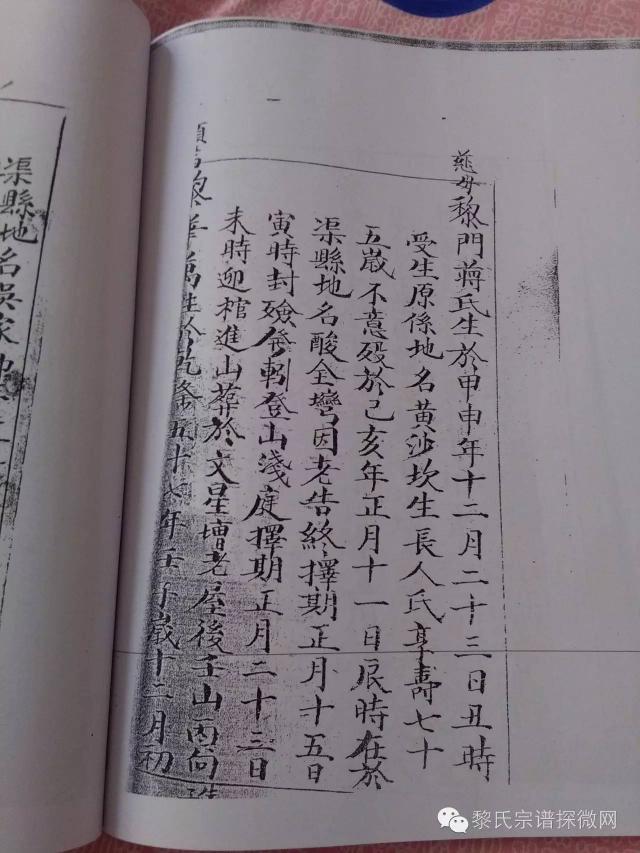 慈母黎門蔣氏生於甲申年十二月二十三日丑時
受生原係地名黃沙坎生長人氏享壽七十
五歲不意歿於己亥年正月十一日辰時在於
渠縣地名酸全灣因老告終擇期正月十五日
寅時封殮發靷登山淺庭擇期正月二十三日
未時迎棺進山葬於文星增老屋後壬山丙向
黎 萬 五十七年壬子歲十二月初
渠縣地名吳家
黎氏宗谱探微网